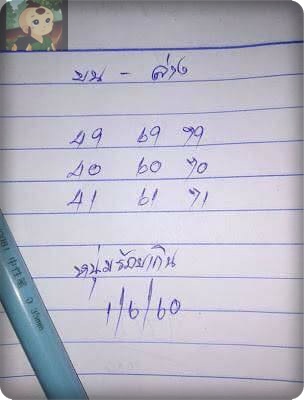 บน - ล่าง
49 69 79
40 60 70
41 61 71
หนุ่มร้อยเกิน
1/6/60
0.35mm